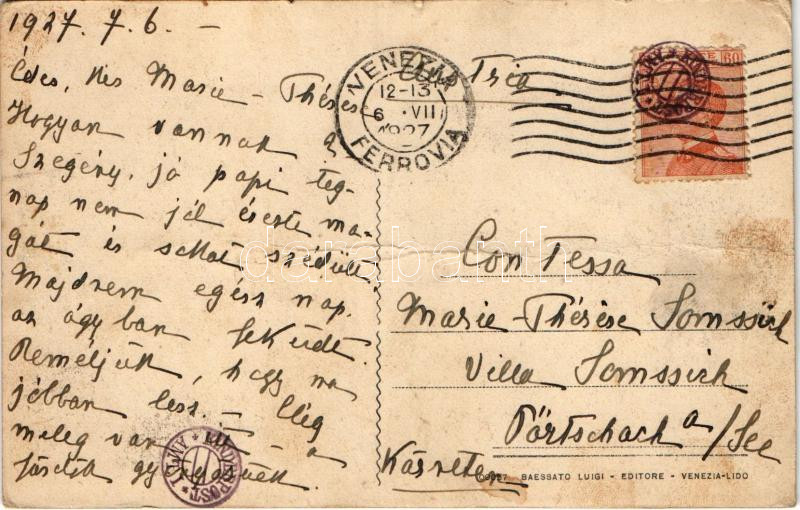 1927. 7. 6. –
Édes, kis Marie-Thérèse
Hogyan vannak?
Szegény, jó papi teg-
nap nem jól érezte ma-
gát és sokat szédült.
Majdnem egész nap.
az ágyban feküdt.
Reméljük, hogy ma
jobban lesz. – Elég
meleg van itt – a
fürdők
Tria
VENEZIA
12-13
6 . VII
1927
FERROVIA
60
Contessa
Marie-Thérèse Somssich
Villa Somssich
Pörtschach a/See
Kärnten
BAESSATO LUIGI - EDITORE - VENEZIA-LIDO
darabanth